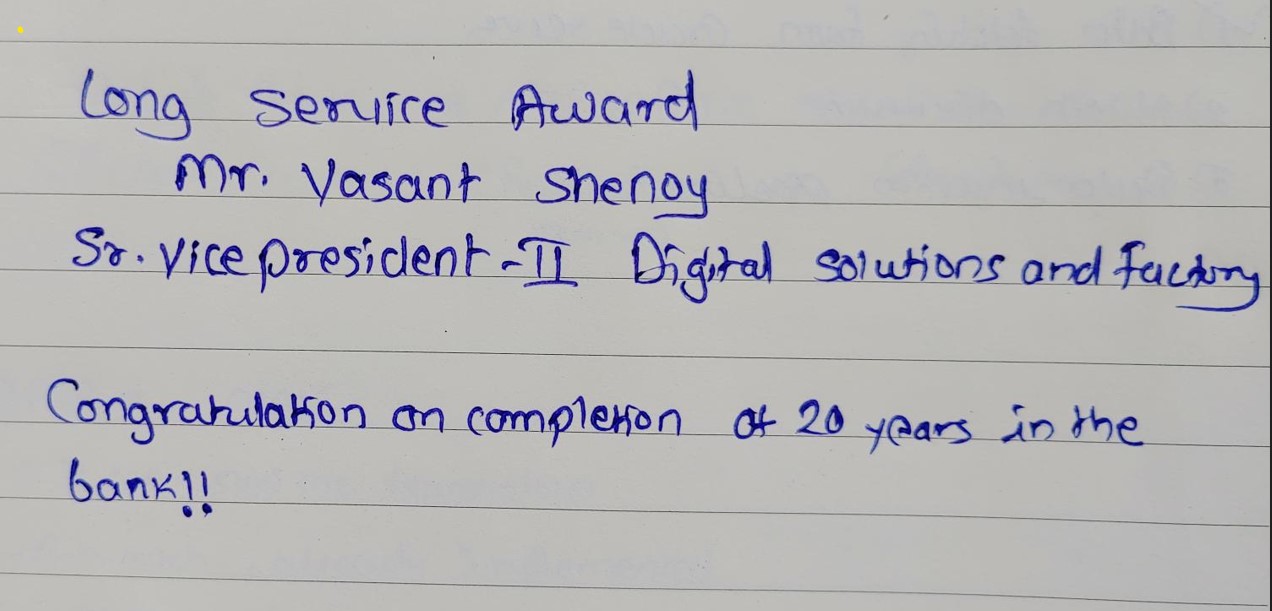 Long Service Award
Mr. Vasant Shenoy
Sr. Vice president - II Digital solutions and factory
Congratulation on completion of 20 years in the
bank!!